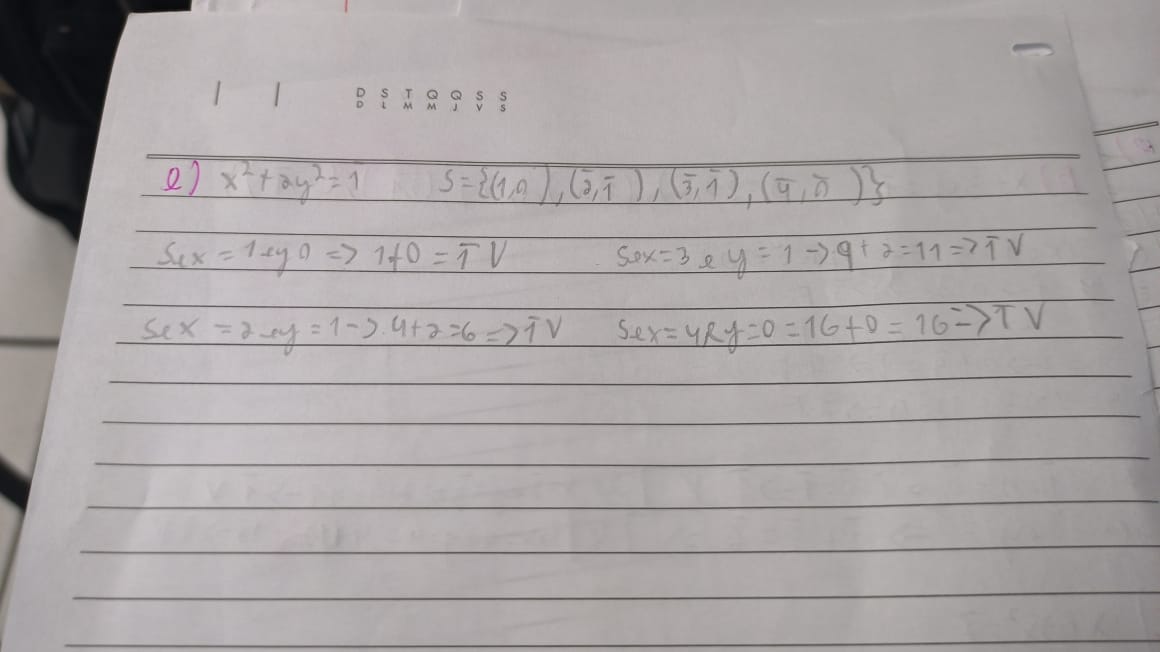 D S T Q Q S S
D L M M J V S
e) x²+2y²=1 S={(1,0),(2̄,1̄),(3̄,1̄),(4̄,0̄)}
Se x = 1 e y 0 => 1+0 = 1̄ V Se x=3 e y = 1 -> 9+2=11=>1̄ V
Se x = 2 e y = 1 -> 4+2=6 => 1̄ V Se x=4 e y=0 = 16+0 = 16 => 1̄ V